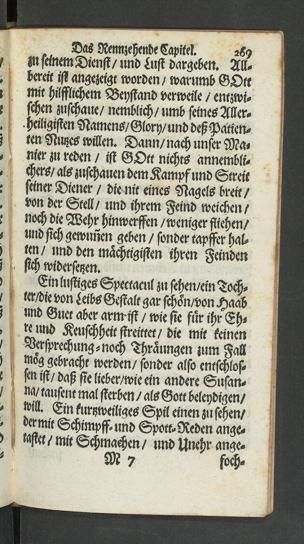 Das Nennzehende Capitel. 269
zu seinem Dienst / und Lust dargeben. All-
bereit ist angezeigt worden / warumb GOtt
mit hilfflichem Beystand verweile / entzwi-
schen zuschaue / nemblich / umb seines Aller-
heiligisten Namens / Glory / und deß Patien-
ten Nutzes willen. Dann / nach unser Ma-
nier zu reden / ist GOtt nichts annembli-
chers / als zuschauen dem Kampf und Streit
seiner Diener / die nit eines Nagels breit /
von der Stell / und ihrem Feind weichen /
noch die Wehr hinwerffen / weniger fliehen /
und sich gewunen geben / sonder tapffer hal-
ten / und den mächtigisten ihren Feinden
sich widersetzen.
Ein lustiges Spectacul zu sehen / ein Toch-
ter / die von Leibs Gestalt gar schön / von Haab
und Guet aber arm ist / wie sie für ihr Eh-
re und Keuschheit streittet / die mit keinen
Versprechung- noch Thräungen zum Fall
mög gebracht werden / sonder also entschlos-
sen ist / daß sie lieber / wie ein andere Susan-
na / tausent mal sterben / als Gott beleydigen /
will. Ein kurtzweiliges Spil einen zu sehen /
der mit Schimpff- und Spott-Reden ange-
tastet / mit Schmaehen / und Unehr ange-
M 7 foch-